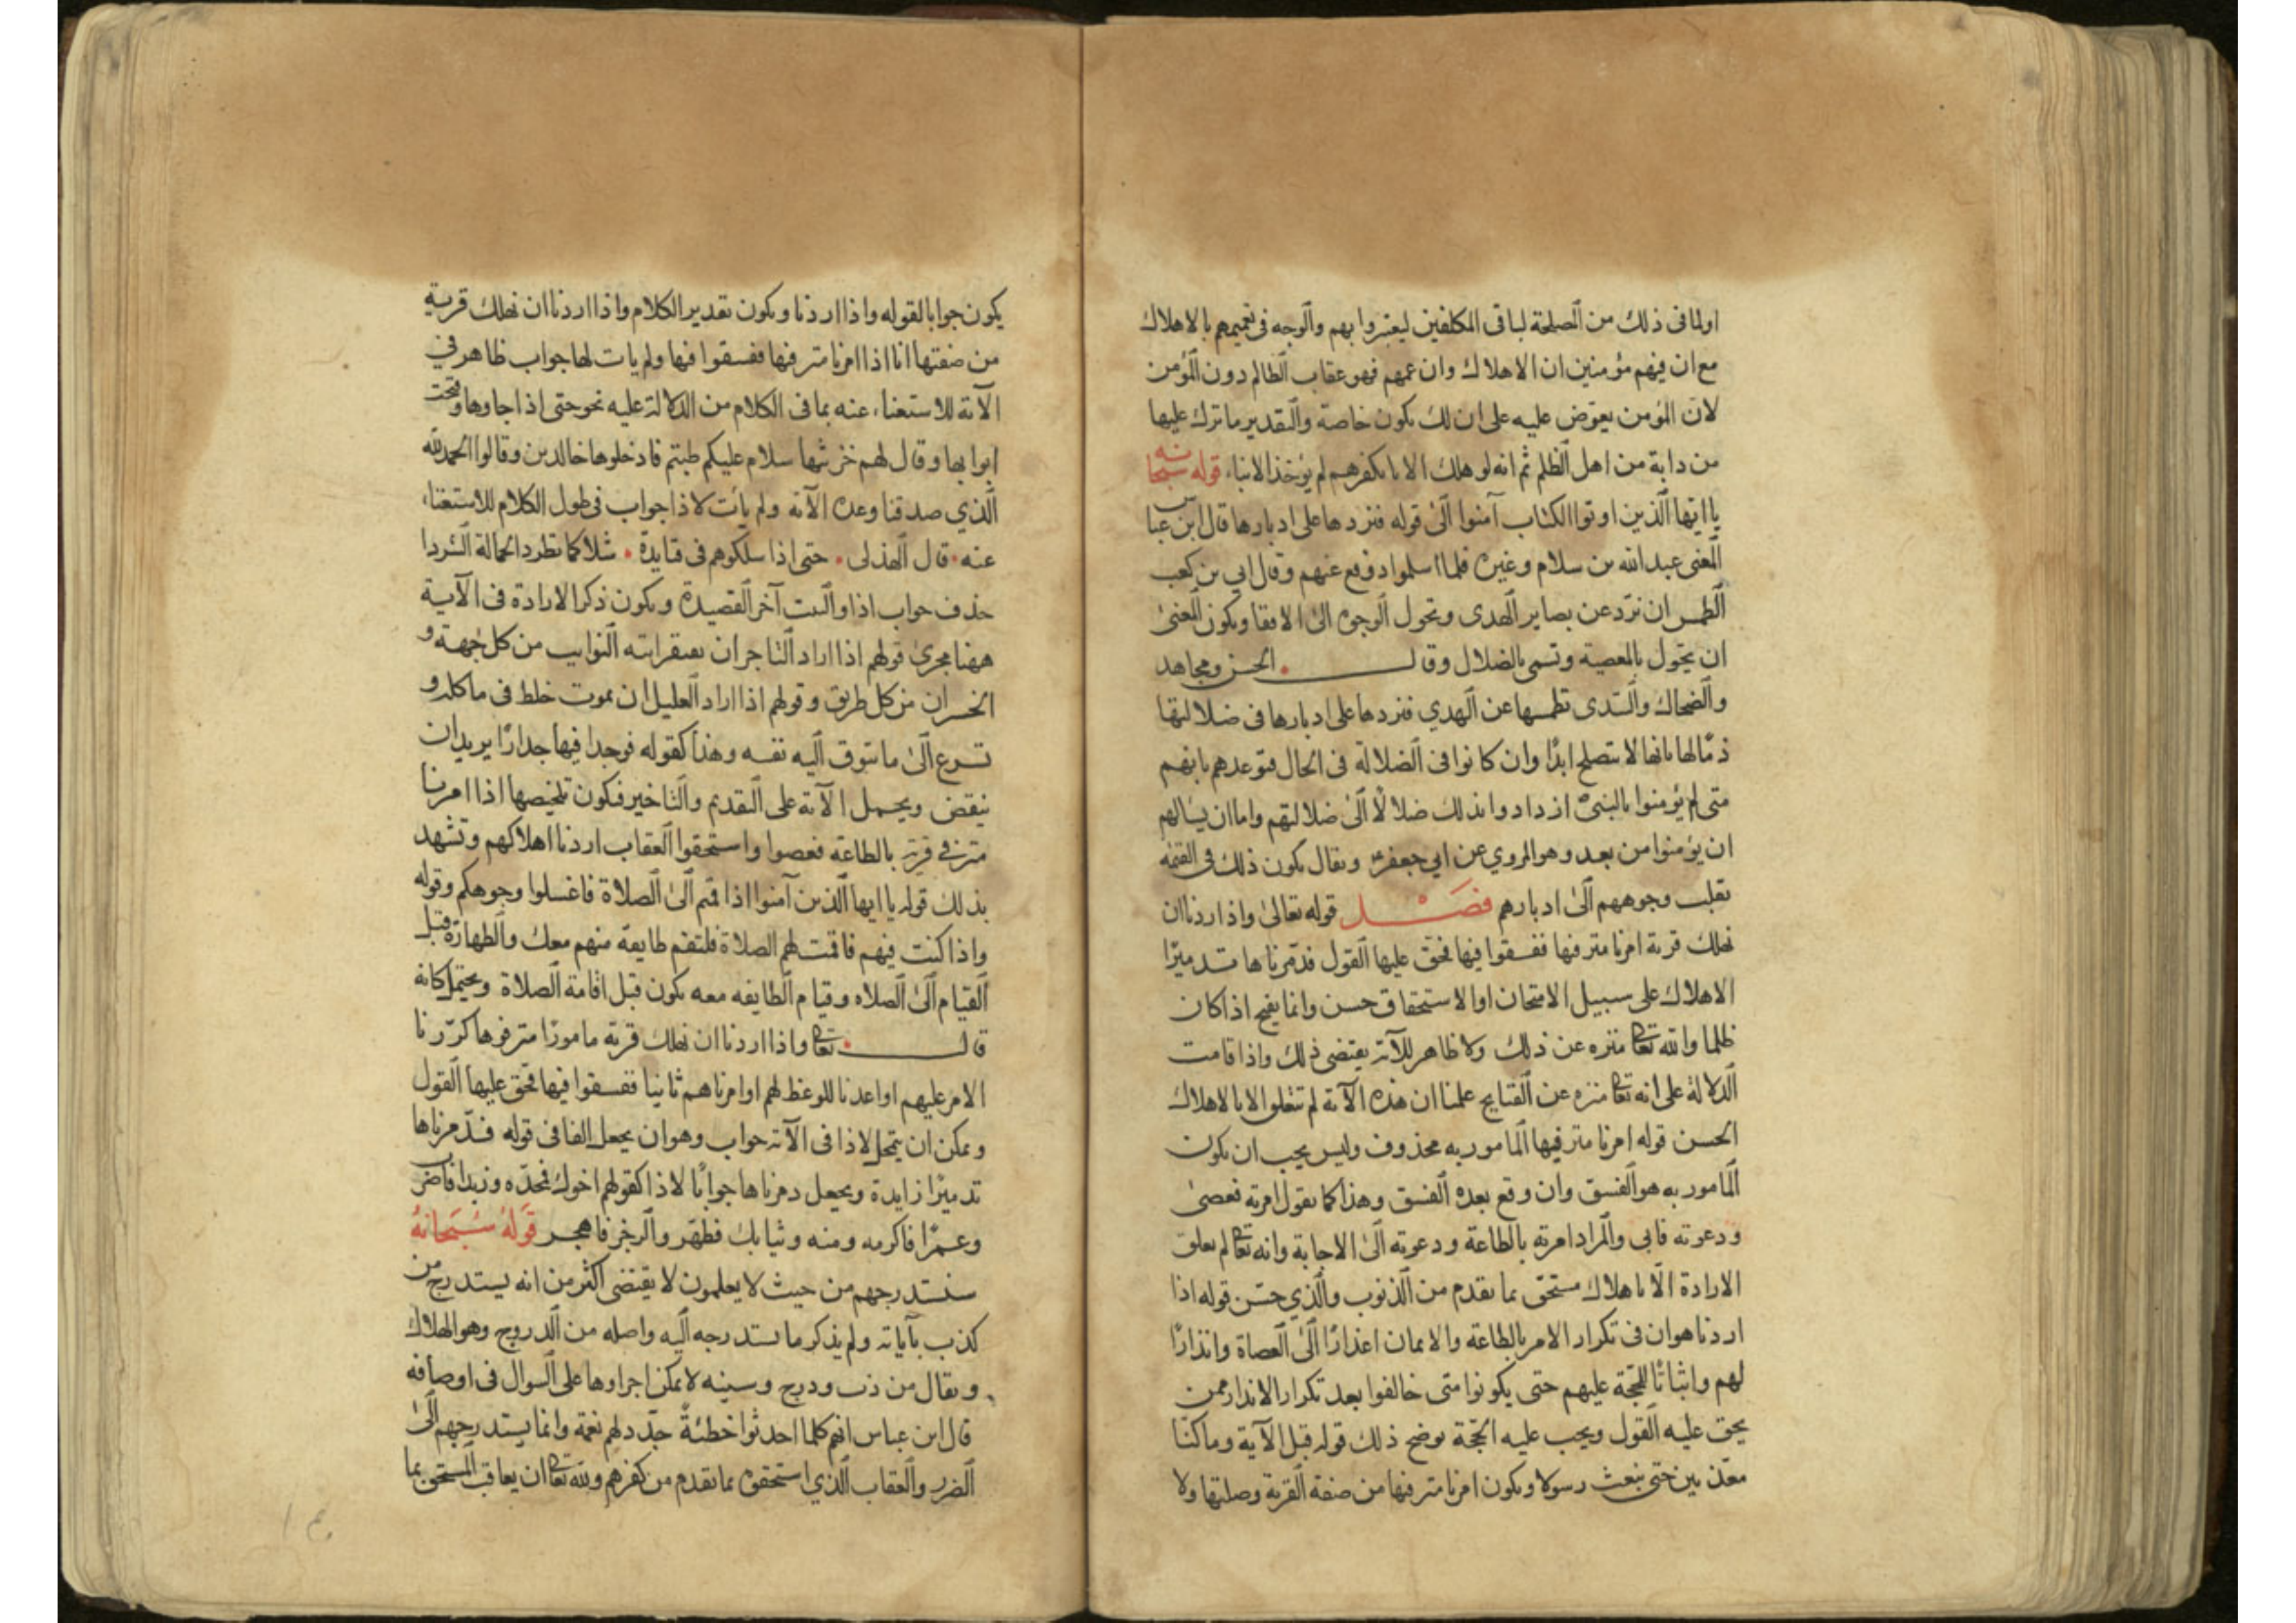 اولما فى ذلك من المصلحة لباقى المكلفين ليعتبروا بهم والوجه فى تعميمهم بالاهلاك
مع ان فيهم مؤمنين ان الاهلاك وان عمهم فهو عقاب الظالم دون المؤمن
لان المؤمن يعوّض عليه على ان لك يكون خاصة والتقدير ما ترك عليها
من دابة من اهل الظلم ثم انه لو هلك الابا بكفرهم لم يؤخذ الابناء قوله سبحانه
يا ايها الذين اوتوا الكتاب آمنوا الى قوله فنردها على ادبارها قال ابن عباس
المعنى عبد الله بن سلام وغيره فلما اسلموا دفع عنهم وقال ابي بن كعب
الطمس ان نردّ عن بصاير الهدى وتحول الوجوه الى الاقفا ويكون المعنى
ان يتحول بالمعصية وتسمى بالضلال وقال الحسن ومجاهد
والضحاك والسّدى نطمسها عن الهدي فنردها على ادبارها فى ضلالتها
ذمّا لها بانها لا تصلح ابدًا وان كانوا فى الضلالة فى الحال فتوعدهم بانهم
متى لم يؤمنوا بالنبىّ ازدادوا بذلك ضلالًا الى ضلالتهم واما ان
ان يؤمنوا من بعد وهو المروي عن ابي جعفر ويقال يكون ذلك فى القيمة
نقلب وجوههم الى ادبارهم فصل قوله تعالى واذا اردنا ان
نهلك قرية امرنا مترفيها ففسقوا فيها فحق عليها القول فدمّرناها تدميرًا
الاهلاك على سبيل الامتحان او الاستحقاق حسن وانما يقبح اذا كان
ظلما والله تعا منزه عن ذلك ولا ظاهر للآية يقتضى ذلك واذا قامت
الدلالة على انه تعا منزه عن القبايح علمنا ان هذه الآية لم تتعلق الا بالاهلاك
الحسن قوله امرنا مترفيها المامور به محذوف وليس يجب ان يكون
المامور به هو الفسق وان وقع بعده الفسق وهذا كما يقول امرته فعصى
ودعوته فابى والمراد امرته بالطاعة ودعوته الى الاجابة وانه تعا لم يعلق
الارادة الّا باهلاك مستحق بما تقدم من الذنوب والذي حسّن قوله اذا
اردنا هو ان فى تكرار الامر بالطاعة والايمان اعذارًا الى العصاة وانذارًا
لهم واثباتًا للحجّة عليهم حتى يكونوا متى خالفوا بعد تكرار الانذار ممن
يحق عليه القول ويجب عليه الحجّة يوضح ذلك قوله قبل الآية وما كنّا
معذّبين حتى نبعث رسولا ويكون امرنا مترفيها من صفة القرية وصلتها ولا
يكون جوابا لقوله واذا اردنا ويكون تقدير الكلام واذا اردنا ان نهلك قرية
من صفتها انا اذا امرنا مترفيها ففسقوا فيها ولم يات لها جواب ظاهر في
الآية للاستغناء عنه بما فى الكلام من الدلالة عليه نحو حتى اذا جاوها وفتحت
ابوابها وقال لهم خزنتها سلام عليكم طبتم فادخلوها خالدين وقالوا الحمد لله
الذي صدقنا وعده الآية ولم يأت لاذا جواب فى طول الكلام للاستغناء
عنه قال الهذلى حتى اذا سلكوهم فى قتايدة شلا كما تطرد الجمالة الشردا
حذف جواب اذا والبيت آخر القصيدة ويكون ذكر الارادة فى الآية
ههنا مجرى قولهم اذا اراد التاجر ان يفتقر اتته النوايب من كل جهة و
الخسران من كل طريق وقولهم اذا اراد العليل ان يموت خلط فى ماكله و
تسرع الى ما تتوق اليه نفسه وهذا كقوله فوجدا فيها جدارًا يريد ان
ينقض ويحمل الآية على التقديم والتاخير فيكون تلخيصها اذا امرنا
مترفي قرية بالطاعة فعصوا واستحقوا العقاب اردنا اهلاكهم وتشهد
بذلك قوله يا ايها الذين آمنوا اذا قمتم الى الصلاة فاغسلوا وجوهكم وقوله
واذا كنت فيهم فاقمت لهم الصلاة فلتقم طايفة منهم معك والطهارة قبل
القيام الى الصلاه وقيام الطايفه معه يكون قبل اقامة الصلاة ويحتمل كانه
قال تعا واذا اردنا ان نهلك قرية مامورًا مترفوها كرّرنا
الامر عليهم او اعدنا للوعظ لهم او امرناهم ثانيا ففسقوا فيها فحق عليها القول
ويمكن ان يتمحل لاذا فى الآية جواب وهو ان يجعل الفا فى قوله فدّمرناها
تدميرًا زايدة ويجعل دمرناها جوابًا لاذا كقولهم اخوك فحدّه وزيدا فاضرب
وعمرًا فاكرمه ومنه وثيابك فطهّر والرجز فاهجر قَولَهُ سُبحَانَهُ
سنستدرجهم من حيث لا يعلمون لا يقتضى اكثر من انه يستدرج من
كذب بآياته ولم يذكر ما يستدرجه اليه واصله من الدروج وهو الهلاك
ويقال من دب ودرج لا يمكن اجراوها على السوال فى اوصافه
قال ابن عباس انهم كلما احدثوا خطئةً جدّد لهم نعمة وانما يستدرجهم الى
الضرر والعقاب الذي استحقوه بما تقدم من كفرهم ولله تعا ان يعاقب المستحق بما